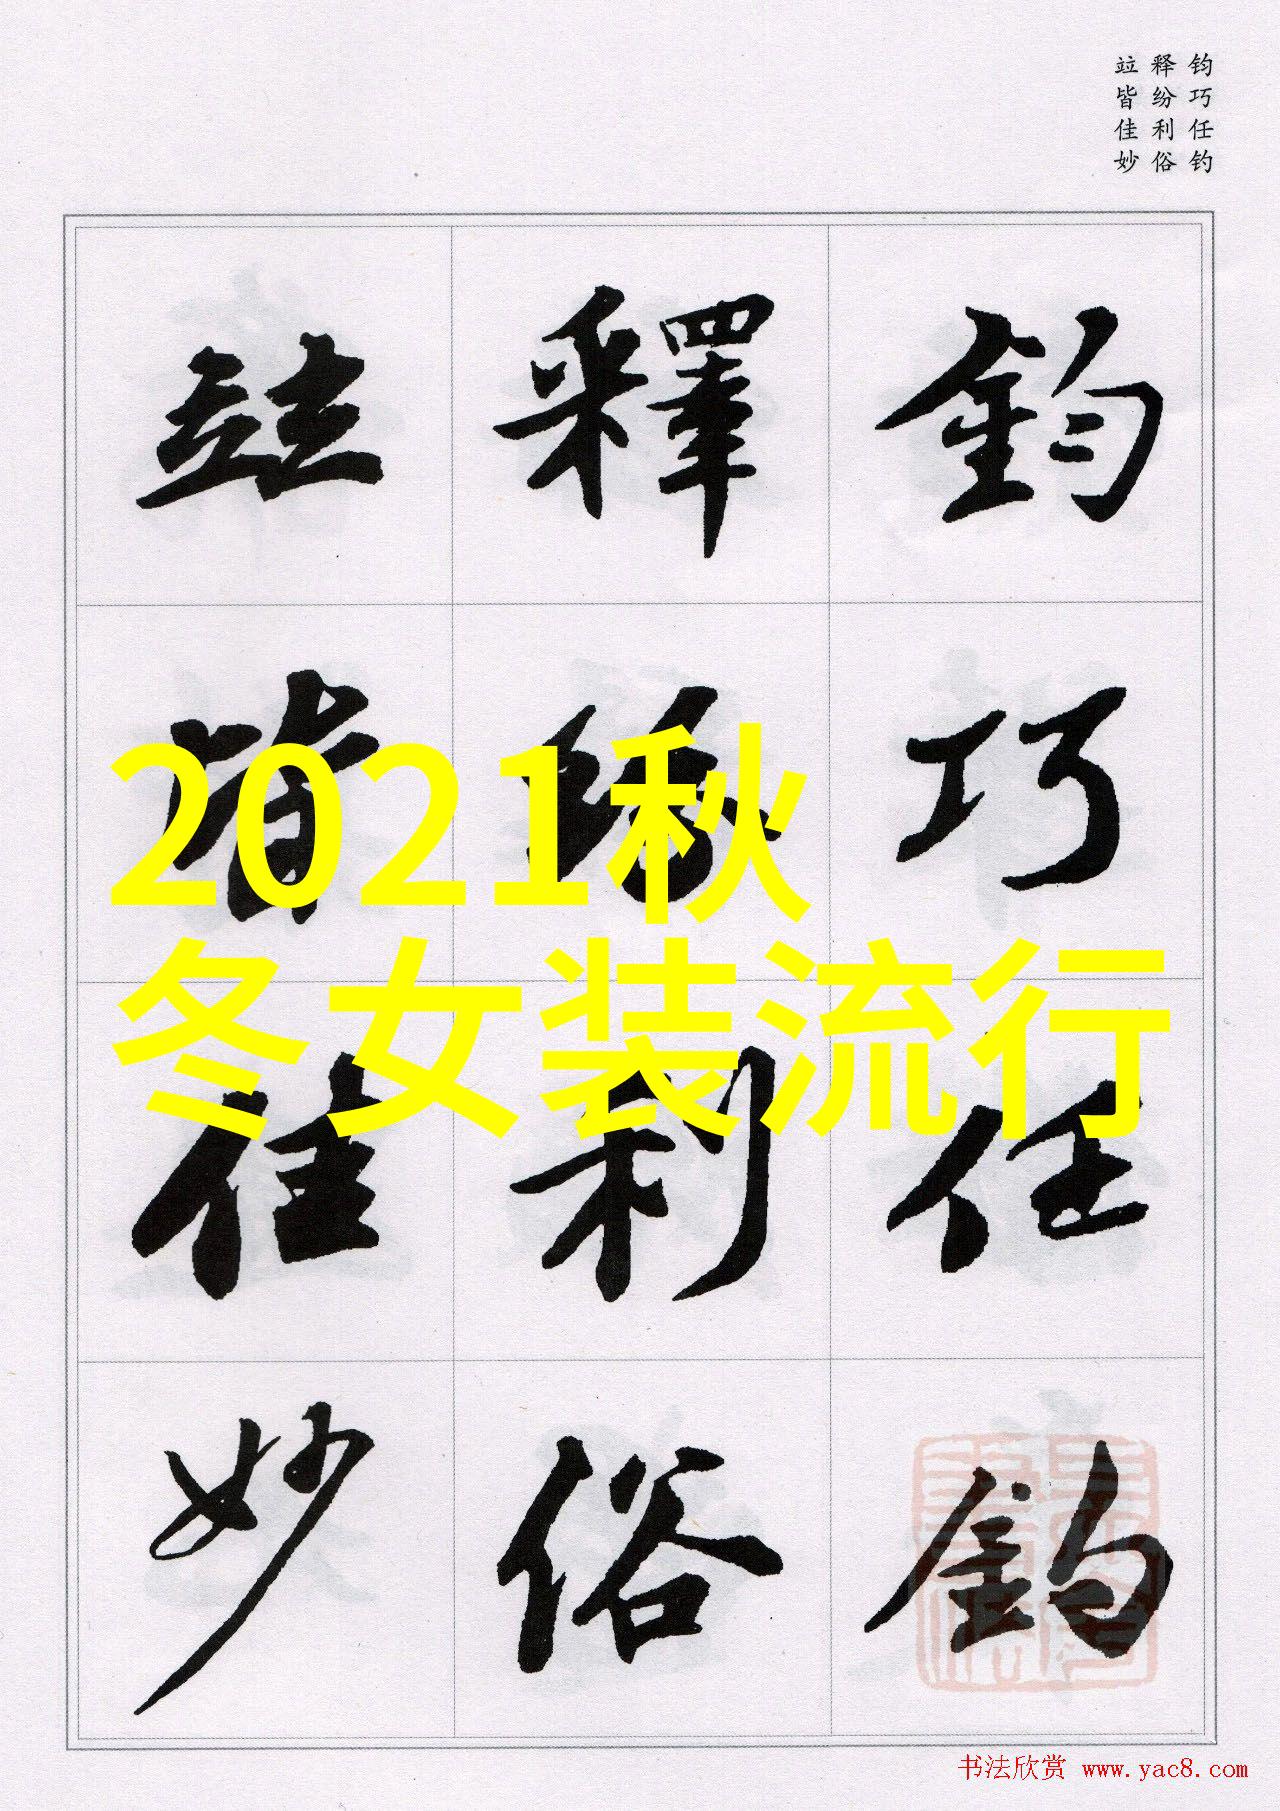 钧巧任钓
释纷利俗
竝皆佳妙
鈞巧任釣
釋紛利俗
竝皆佳妙
2021秋
冬女装流行
书法欣赏 www.yac8.com